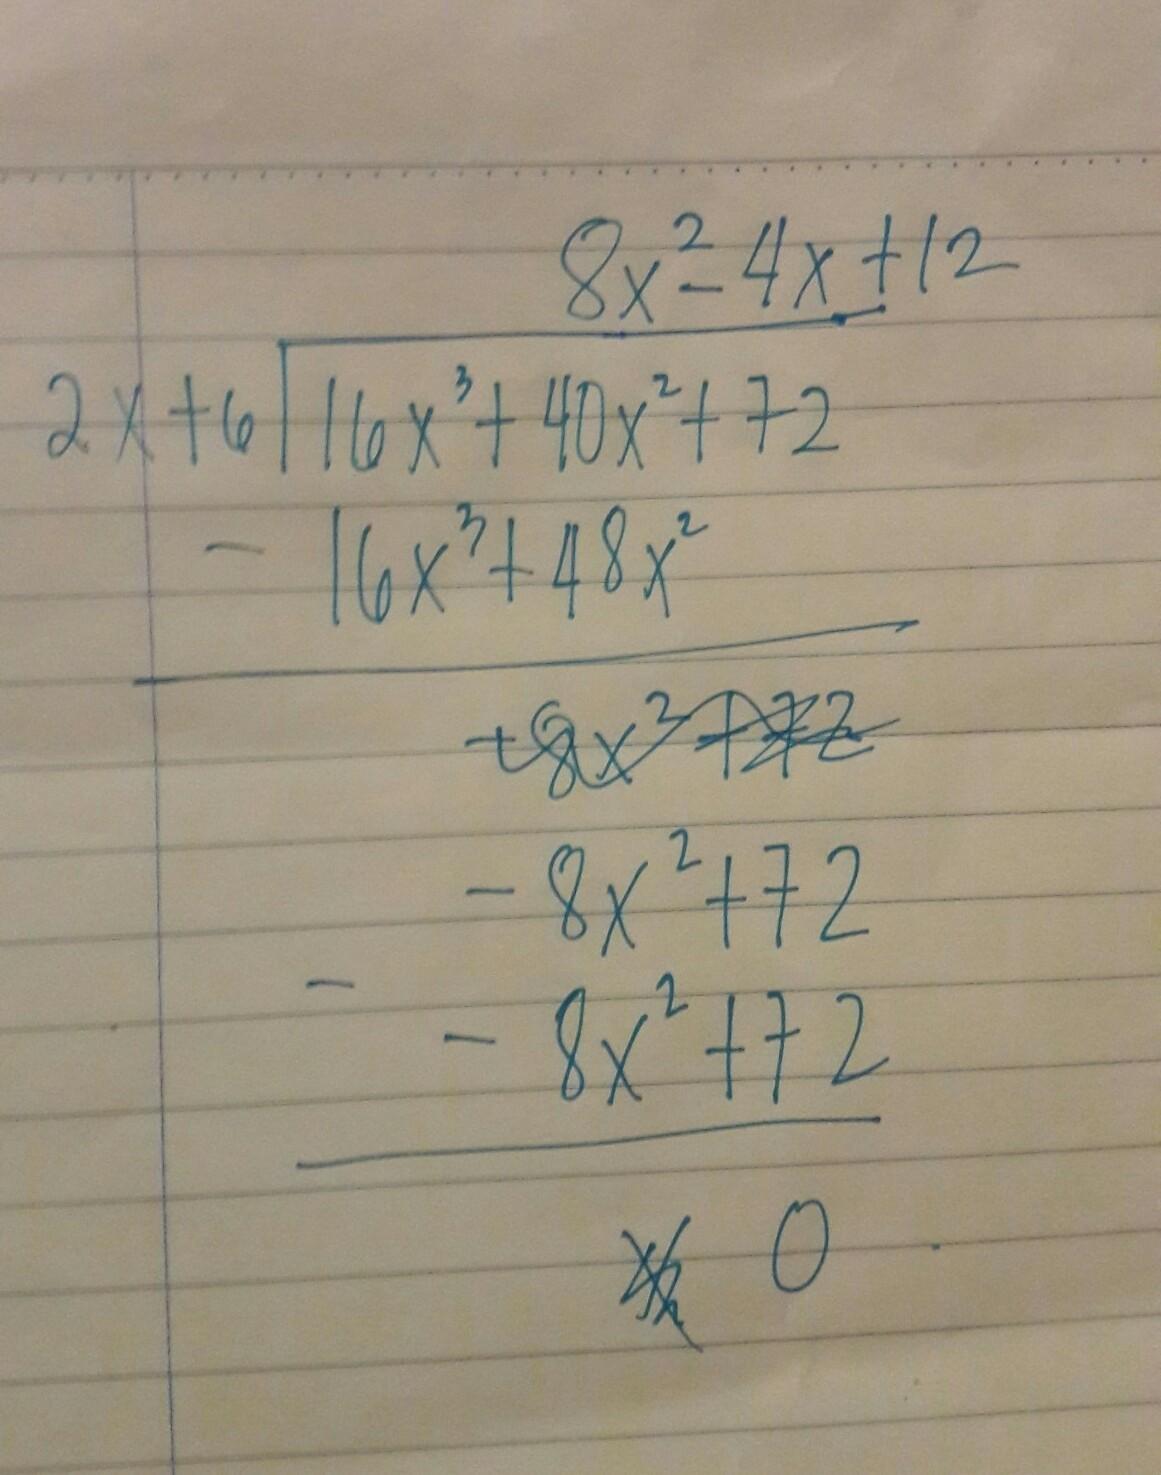 8x²-4x+12
2x+6 16x³+40x²+72
- 16x³+48x²
+8x²+72
-8x²+72
- -8x²+72
0